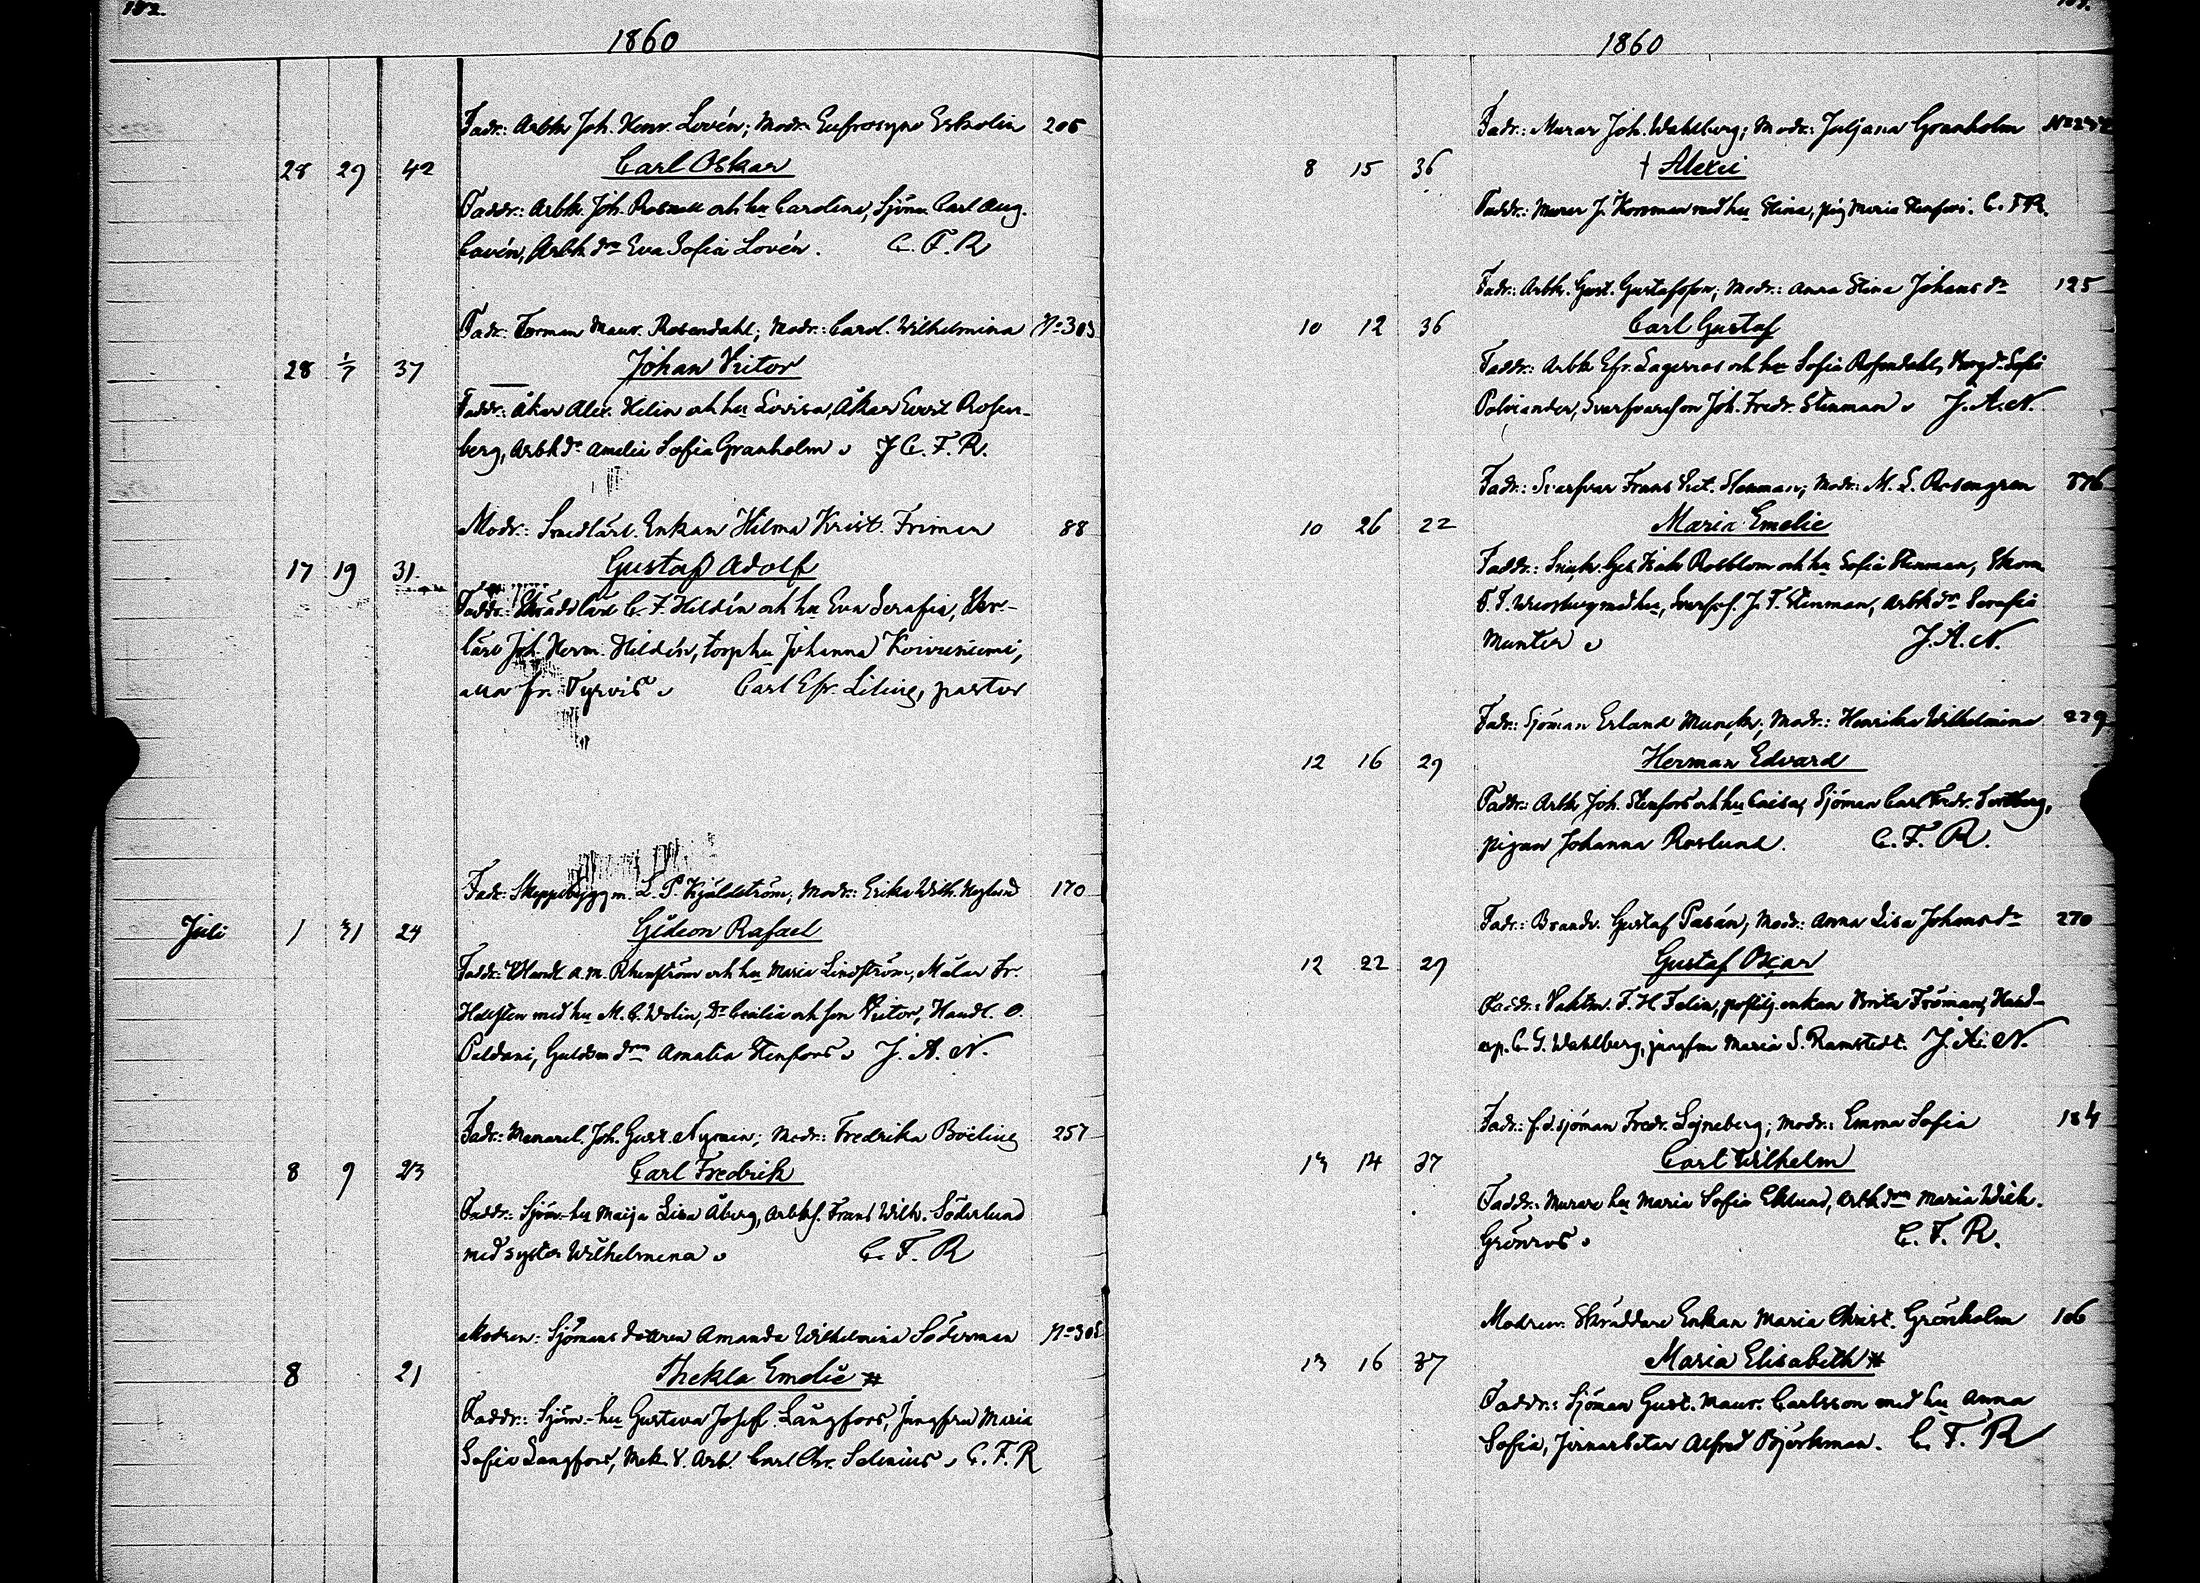 152.
1860
Fadr: Arbk Joh. Henr. Lovén; Modr: Eufrosyne Eskolin 205
28 29 42 Carl Oskar
Faddr: Arbk. Joh. Rosnell och hu Carolina, Sjöm. Carl Aug.
Lovén, Arbk dr Eva Sofia Lovén. C. F. R
Fadr: Forman Maur. Rosendahl; Modr: Carol. Wilhelmina No 303
28 1/7 37 Johan Victor
Faddr: Åkar Alex. Helin och hu Lovisa, Åkar Evert Rosen-
berg, Arbk dr Amelia Sofia Granholm. C. F. R.
Modr: Smedlärl. Enkan Hilma Krist. Friman 88
17 19 31 Gustaf Adolf
Faddr: C. F. Hildén och hu Eva Serafia,
lärl Joh. Herm. Hildén, torp hu Johanna Koivuniemi,
fr. Tyrvis. Carl Efr. Lilius, pastor
Fadr: Skeppsbyggm. L. P. Kjäldström; Modr: Erika Wilh. Heglund 170
Juli 1 31 24 Gideon Rafael
Faddr: Handl. A. M. Rhenström och hu Maria Lindström, Målar Fr.
Hallsten med hu M. C. Wolin, Dr Cecilia och son Victor, Handl. O.
Peldani, Guldsm drn Amalia Stenfors. J. A. N.
Fadr: Joh. Gust. Nyroin; Modr: Fredrika Böeling 257
8 9 23 Carl Fredrik
Faddr: Sjöm.-hu Maija Lisa Åberg, Arbk s. Frans Wilh. Söderlund
med syster Wilhelmina. C. F. R
Modren: Sjömans dottren Amanda Wilhelmina Söderman No 305
8 21 Thekla Emelie #
Faddr: Sjöm-hu Gustava Josef. Långfors, Jungfru Maria
Sofia Långfors, Mek. V. Arb. Carl Chr. Selenius. C. F. R
1860
Fadr: Murar Joh. Wahlberg; Modr: Juljana Granholm
8 15 36 † Alexei
Faddr: Murar J. Korsman med hu Stina, pig Maria Stenfors. C. F. R.
Fadr: Arbk. Gust. Gustafsson; Modr: Anna Stina Johans dr 125
10 12 36 Carl Gustaf
Faddr: Arbk Efr. Lagerros och hu Sofia Rosendahl, dr Sofia
Polviander, Svarfvareson Joh. Fredr. Stenman. J. A. N.
Fadr: Svarfvar Frans Vict. Stenman; Modr: M. S. Rosengren 376
10 26 22 Maria Emelie
Faddr: Isak Rosblom och hu Sofia Stenman,
med hu, Svarf. J. F. Stenman, Arbk drn Serafia
Munter. J. A. N.
Fadr: Sjöman Erland Munck; Modr: Henrika Wilhelmina 279
12 16 29 Herman Edvard
Faddr: Arbk Joh. Stenfors och hu Caisa, Sjöman Carl Fredr.
pigan Johanna Roslund. C. F. R.
Fadr: Brandv. Gustaf Pasán; Modr: Anna Lisa Johans dr 270
12 22 29 Gustaf Oscar
Faddr: Vaktm. F. H. Felin, enkan Brita Fröman, Hand-
exp. C. G. Wahlberg, jungfru Maria S. Ramstedt. J. A. N.
Fadr: f. d. sjöman Fredr. Lejneberg; Modr: Emma Sofia 184
13 14 37 Carl Wilhelm
Faddr: Murare hu Maria Sofia Eklund, Arbk drn Maria Wilh.
Grönros. C. F. R.
Modren: Skräddare Enkan Maria Christ. Grönholm 106
13 16 37 Maria Elisabeth #
Faddr: Sjöman Gust. Maur. Carlsson med hu Anna
Sofia, Jernarbetar Alfred Björkman. C. F. R